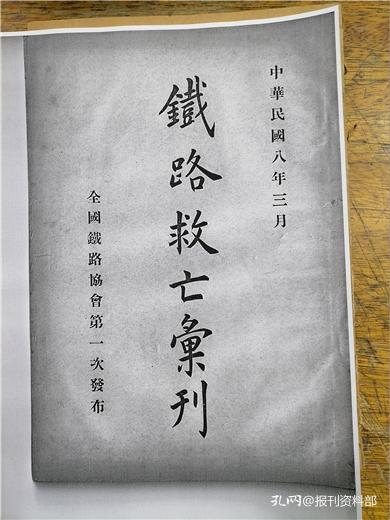 中華民國八年三月
鐵路救亡彙刊
全國鐵路協會第一次發布
孔网@报刊资料部